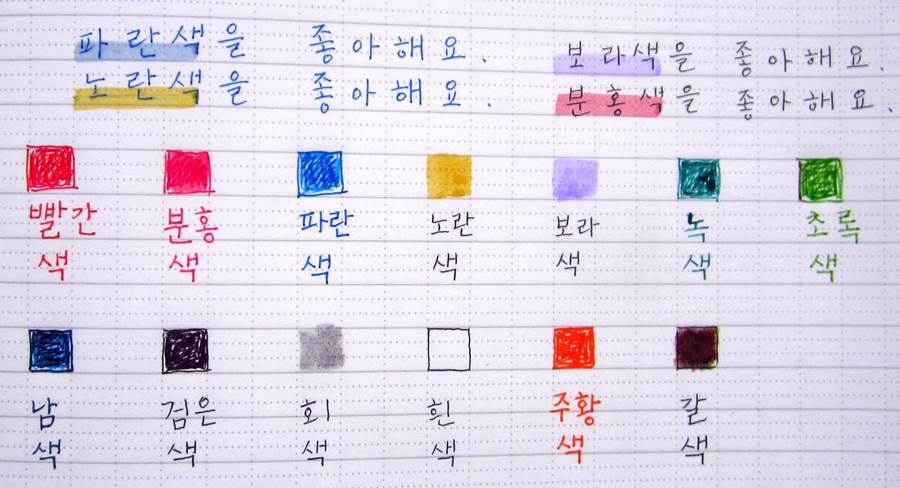 파란색을 좋아해요.
노란색을 좋아해요.
보라색을 좋아해요.
분홍색을 좋아해요.
빨간 분홍 파란 노란 보라 녹 초록
색 색 색 색 색 색 색
남 검은 회 흰 주황 갈
색 색 색 색 색 색